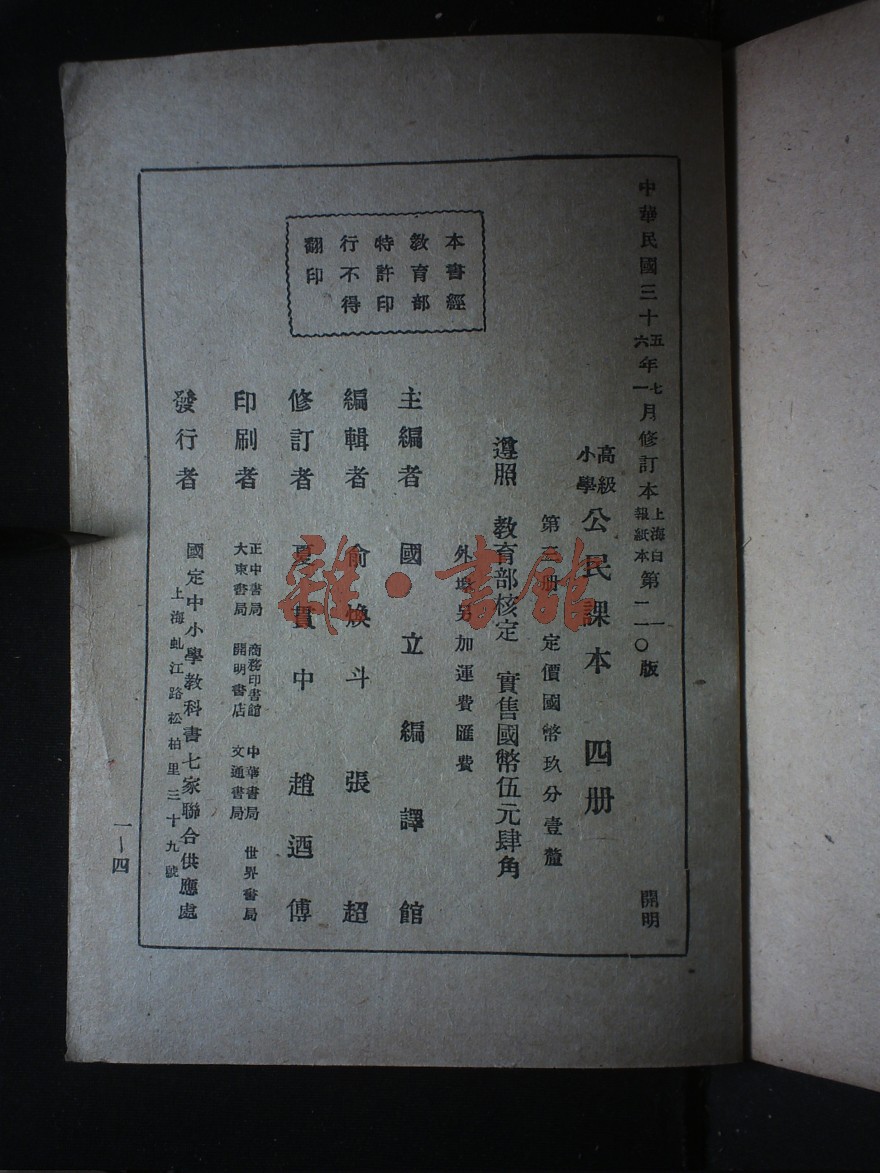 中華民國三十五年七月修訂本上海白報紙本第一版
六年一第二一〇版
開明
高級小學公民課本 四册
第三册 定價國幣玖分壹釐
遵照 教育部核定 實售國幣伍元肆角
外埠另加運費匯費
本書經
教育部
特許印
行不得
翻印
主編者 國立編譯館
編輯者 俞煥斗 張超
修訂者 夏貫中 趙迺傳
印刷者 正中書局 商務印書館 中華書局 世界書局
大東書局 開明書店 文通書局
發行者 國定中小學教科書七家聯合供應處
上海虬江路松柏里三十九號
一—四
雜·書館